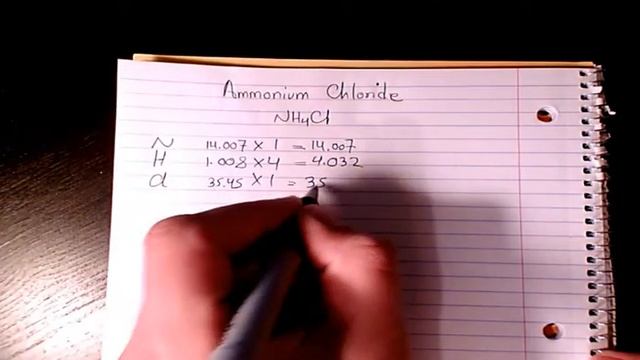 Ammonium Chloride
NH4Cl
N 14.007 × 1 = 14.007
H 1.008 × 4 = 4.032
Cl 35.45 × 1 = 35